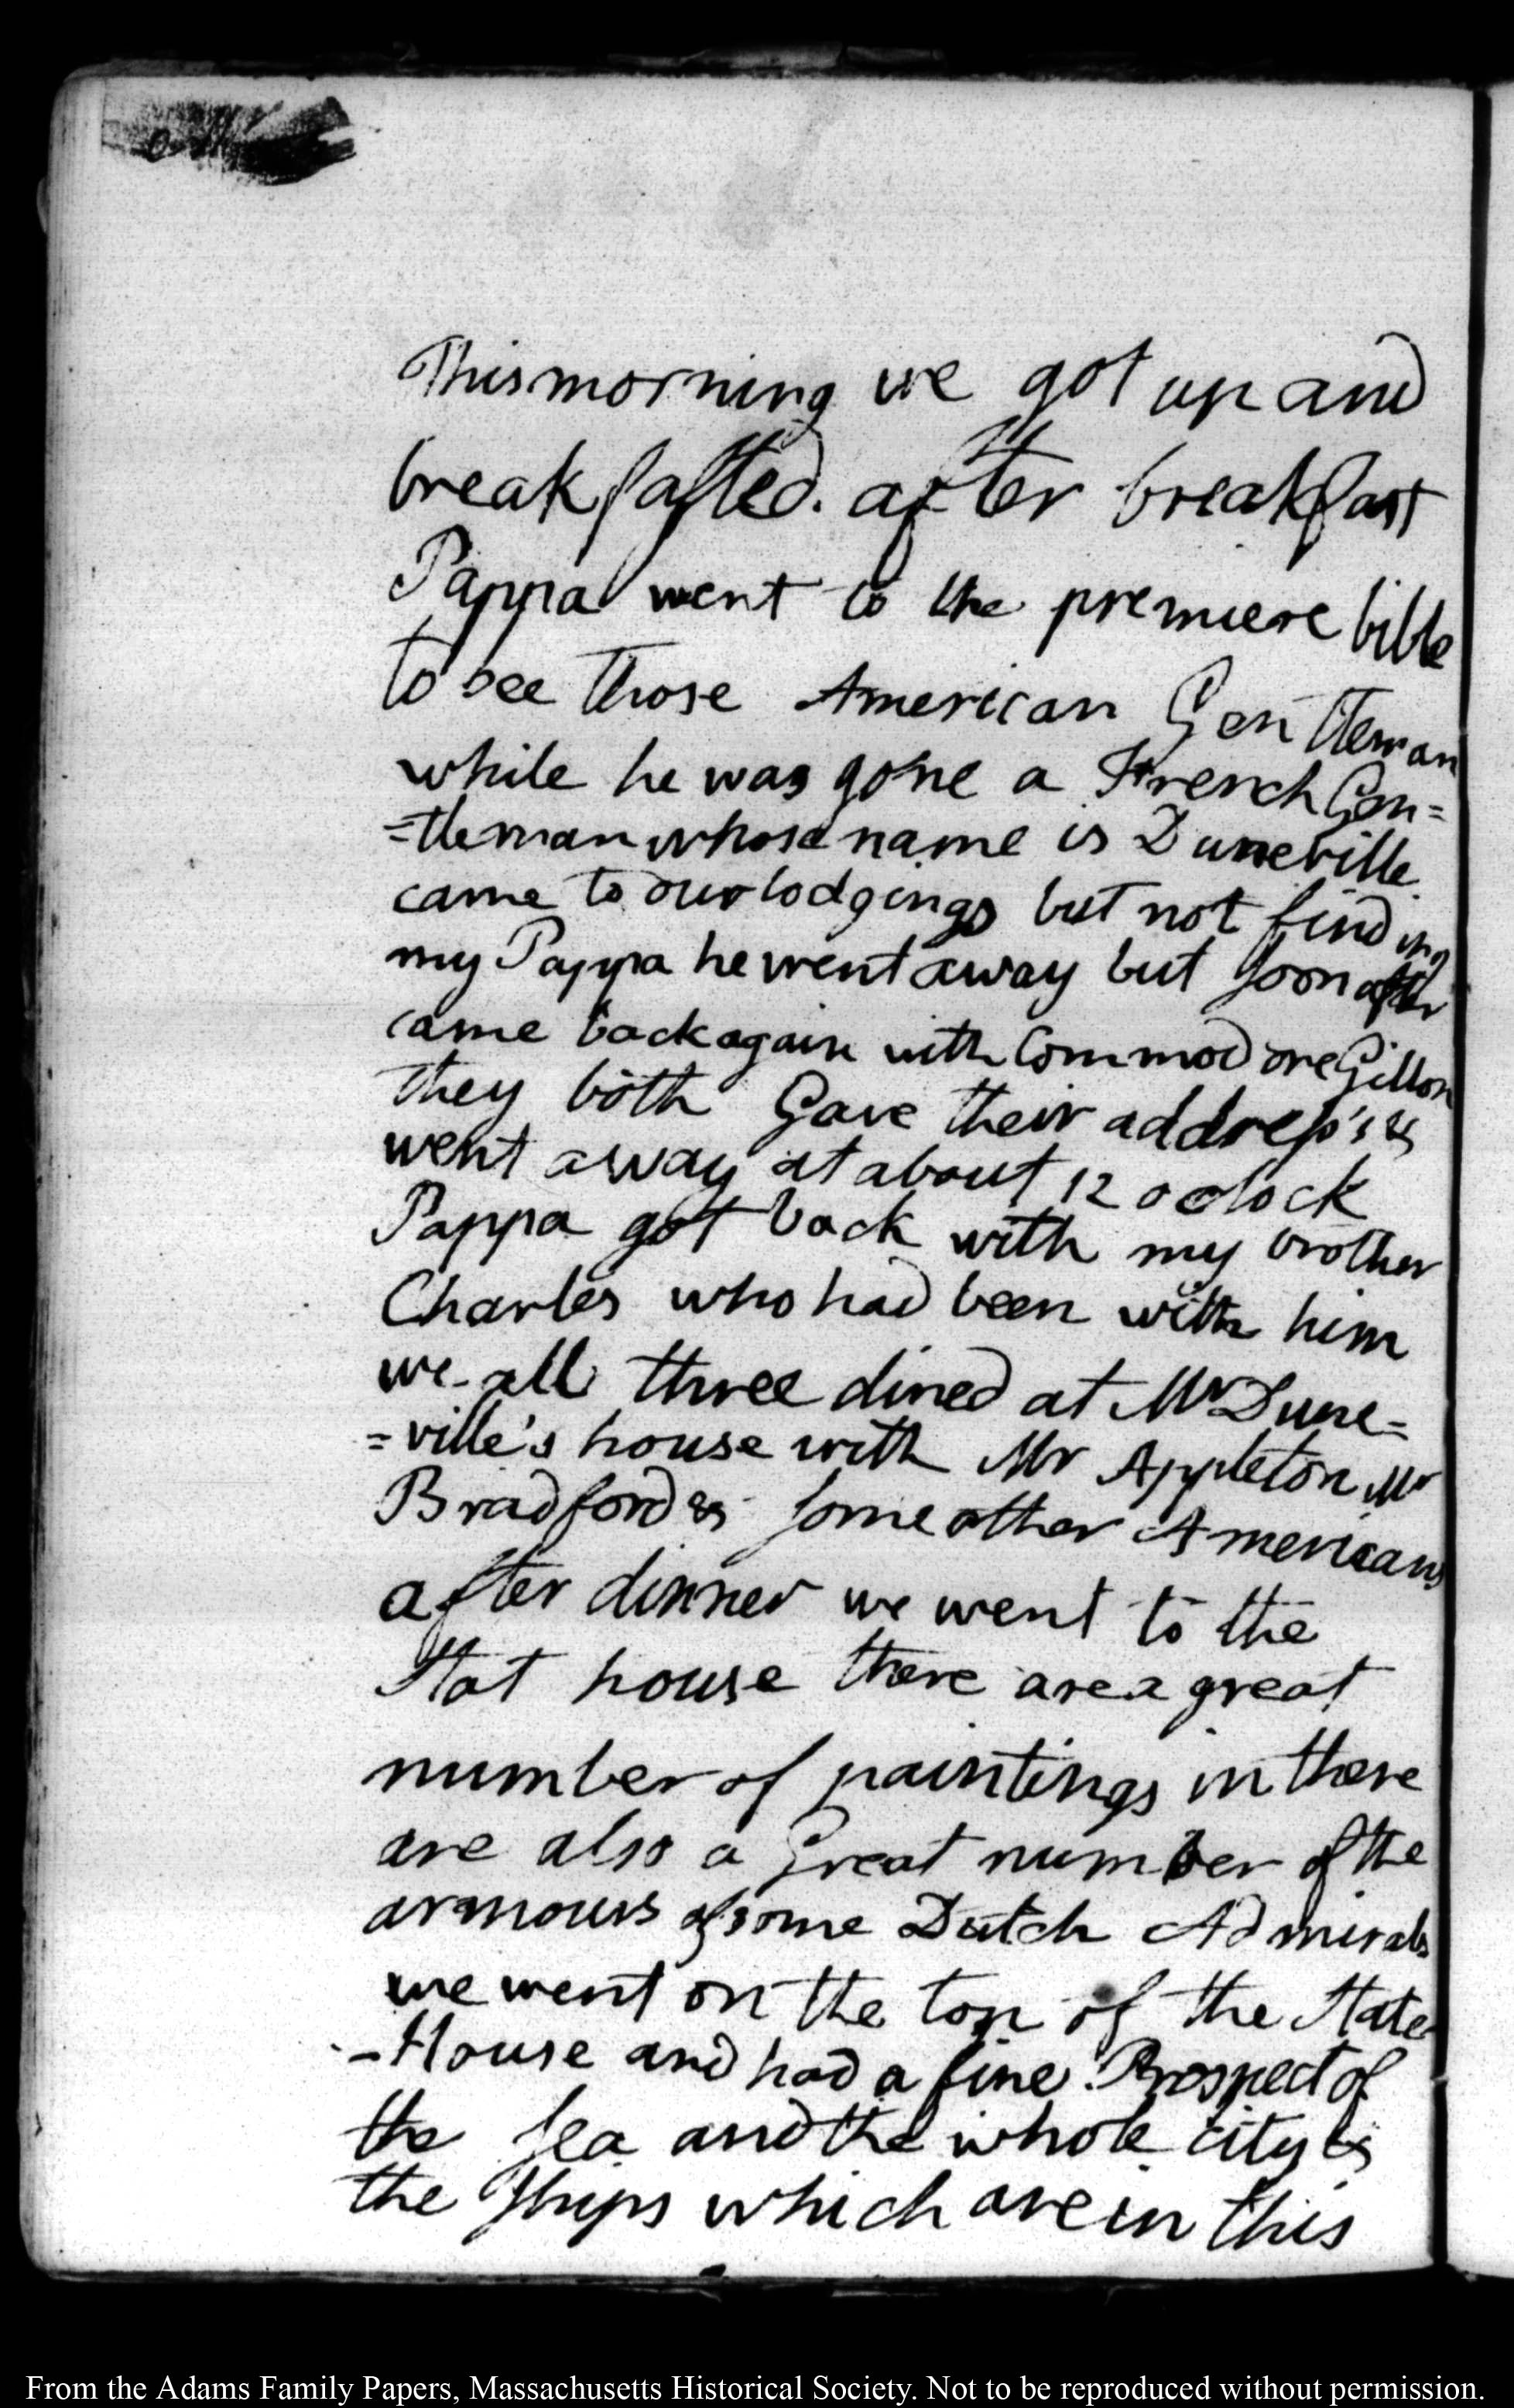 This morning we got up and
breakfasted. after breakfast
Pappa went to the premiere bible
to see those American Gentleman
while he was gone a French Gen=
=tleman whose name is Duneville
came to our lodgings but not finding
my Pappa he went away but soon after
came back again with Commodore Gillon
they both Gave their address's &
went away at about 12 o clock
Pappa got back with my brother
Charles who had been with him
we all three dined at Mr Dune=
=ville's house with Mr Appleton Mr
Bradford & some other Americans
after dinner we went to the
Stat house there are a great
number of paintings in there
are also a Great number of the
armours of some Dutch Admirals
we went on the top of the State
-House and had a fine Prospect of
the Sea and the whole city &
the Ships which are in this
From the Adams Family Papers, Massachusetts Historical Society. Not to be reproduced without permission.